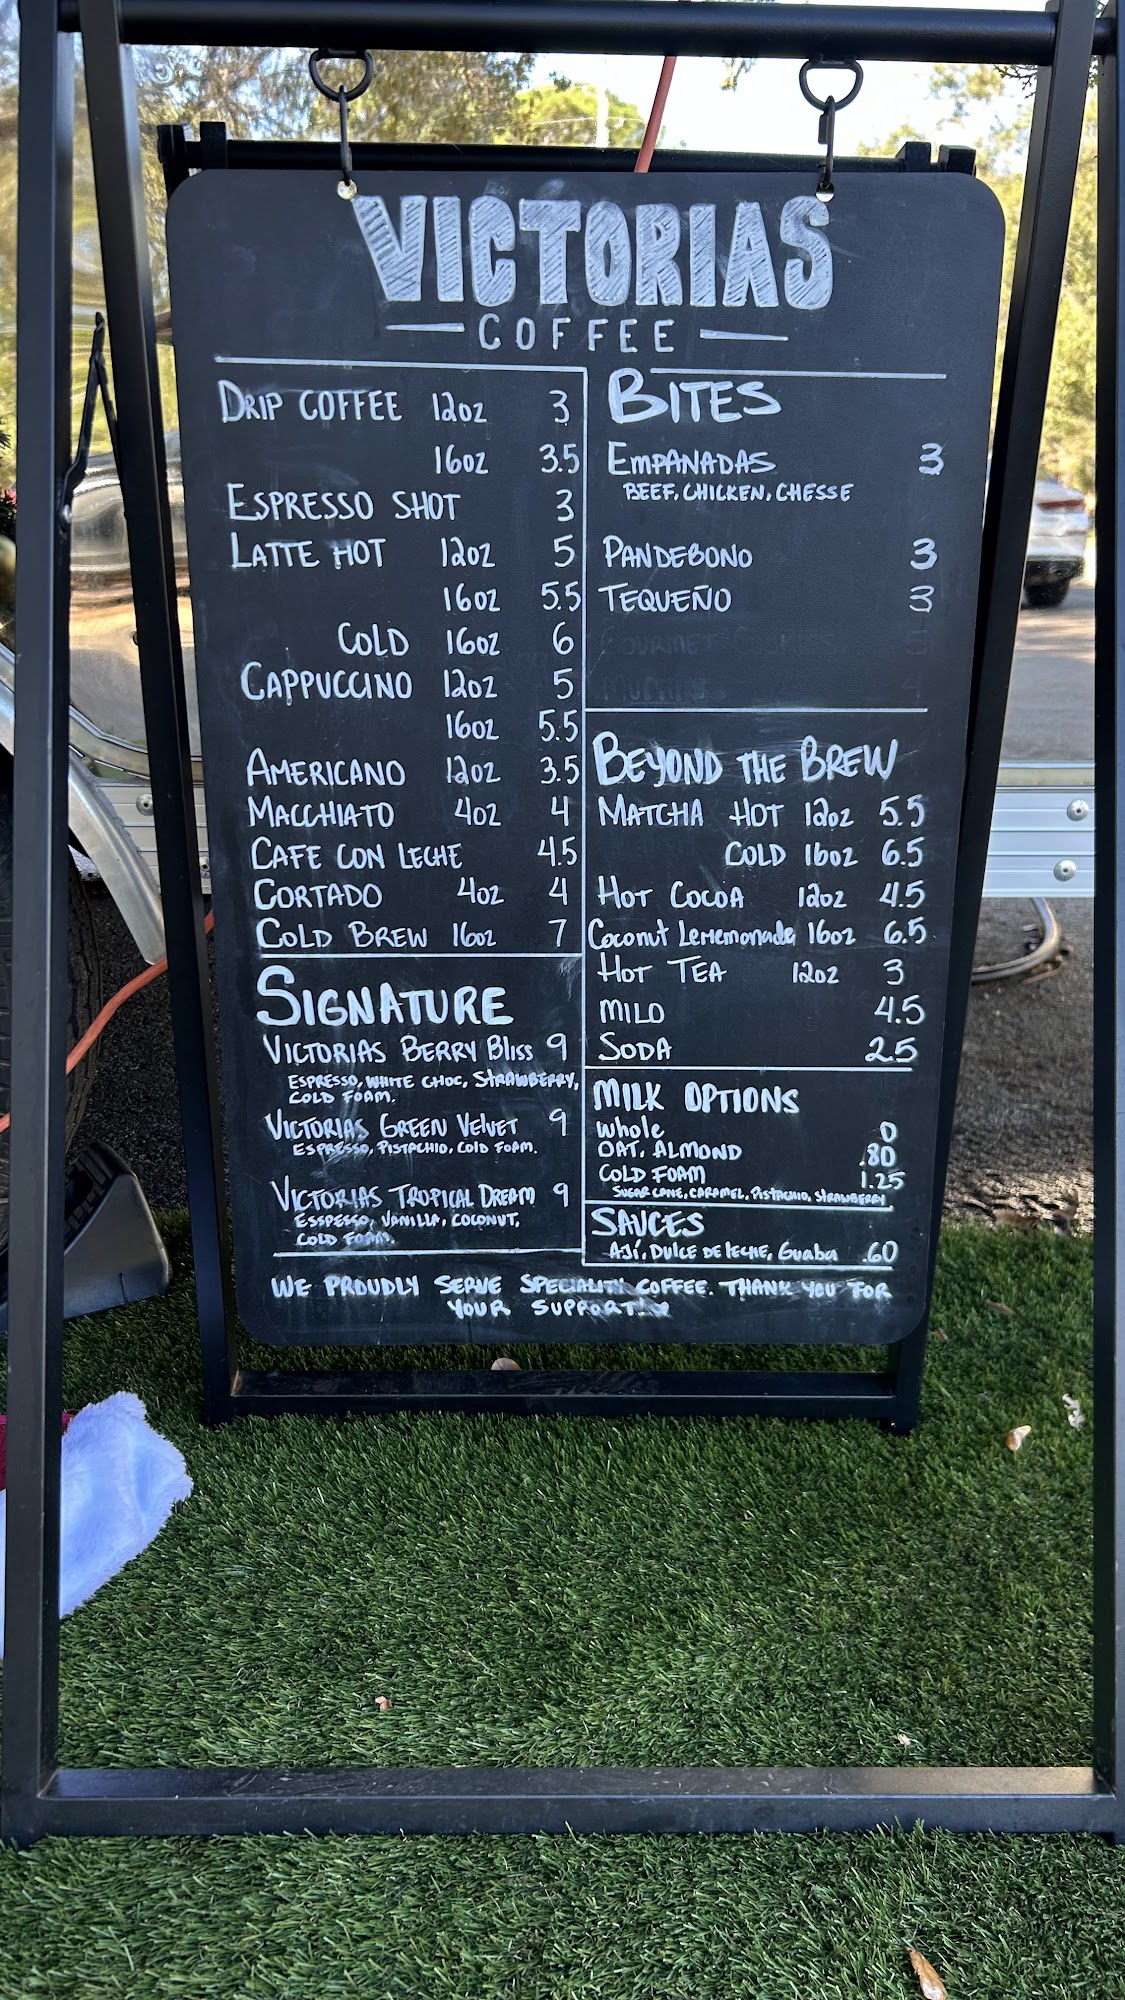 VICTORIAS
COFFEE
DRIP COFFEE 12oz 3
16oz 3.5
ESPRESSO SHOT 3
LATTE HOT 12oz 5
16oz 5.5
COLD 16oz 6
CAPPUCCINO 12oz 5
16oz 5.5
AMERICANO 12oz 3.5
MACCHIATO 4oz 4
CAFE CON LECHE 4.5
CORTADO 4oz 4
COLD BREW 16oz 7
SIGNATURE
VICTORIAS BERRY Bliss 9
ESPRESSO, WHITE CHOC, STRAWBERRY,
COLD FOAM.
VICTORIAS GREEN VELVET 9
ESPRESSO, PISTACHIO, COLD FOAM.
VICTORIAS TROPICAL DREAM 9
ESSPESSO, VANILLA, COCONUT,
COLD FOAM.
BITES
EMPANADAS 3
BEEF, CHICKEN, CHESSE
PANDEBONO 3
TEQUEÑO 3
BEYOND THE BREW
MATCHA HOT 12oz 5.5
COLD 16oz 6.5
HOT COCOA 12oz 4.5
Coconut Lememonade 16oz 6.5
HOT TEA 12oz 3
MILO 4.5
SODA 2.5
MILK OPTIONS
Whole 0
OAT, ALMOND .80
COLD FOAM 1.25
SUGAR CANE, CARAMEL, PISTACHIO, STRAWBERRY
SAUCES
AJÍ, DULCE DE LECHE, Guaba .60
WE PROUDLY SERVE SPECIALITY COFFEE. THANK YOU FOR
YOUR SUPPORT!